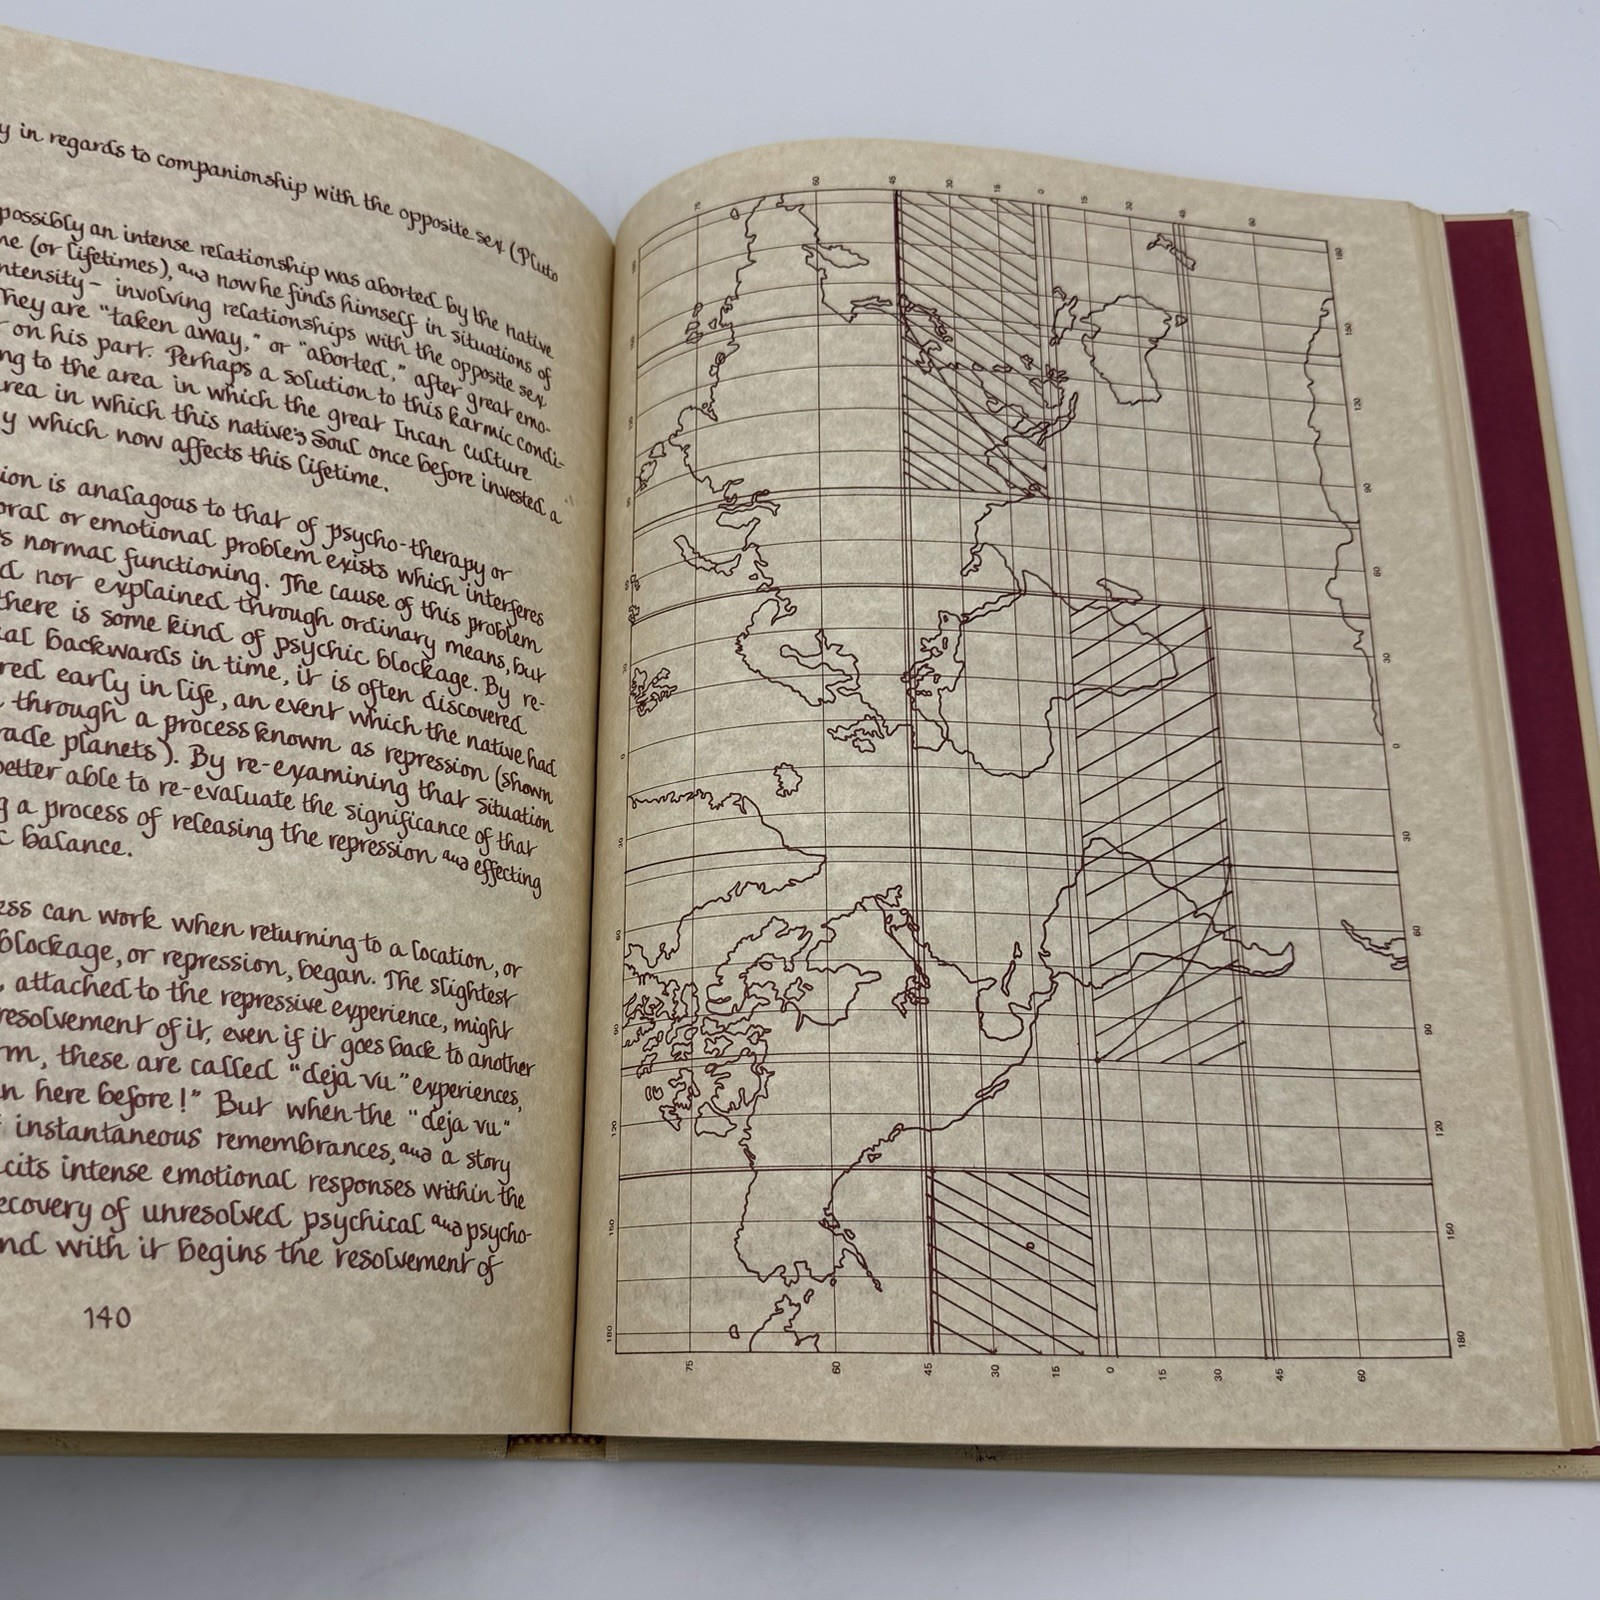 y in regards to companionship with the opposite sex (Pluto
possibly an intense relationship was aborted by the native
ne (or lifetimes), and now he finds himself in situations of
ntensity - involving relationships with the opposite sex
They are "taken away," or "aborted," after great emo-
r on his part. Perhaps a solution to this karmic condi-
ng to the area in which the great Incan culture
area in which this native's Soul once before invested a
y which now affects this lifetime.
ion is analagous to that of psycho-therapy or
oral or emotional problem exists which interferes
s normal functioning. The cause of this problem
d nor explained through ordinary means, but
there is some kind of psychic blockage. By re-
cal backwards in time, it is often discovered
red early in life, an event which the native had
through a process known as repression (shown
rade planets). By re-examining that situation
better able to re-evaluate the significance of that
g a process of releasing the repression and effecting
c balance.
ess can work when returning to a location, or
blockage, or repression, began. The slightest
, attached to the repressive experience, might
resolvement of it, even if it goes back to another
rm, these are called "deja vu" experiences,
n here before!" But when the "deja vu"
f instantaneous remembrances, and a story
cits intense emotional responses within the
ecovery of unresolved psychical and psycho-
nd with it begins the resolvement of
140
75 60 45 30 15 0 15 30 45 60
180 150 120 90 60 30 0 30 60 90 120 150 180
75 60 45 30 15 0 15 30 45 60